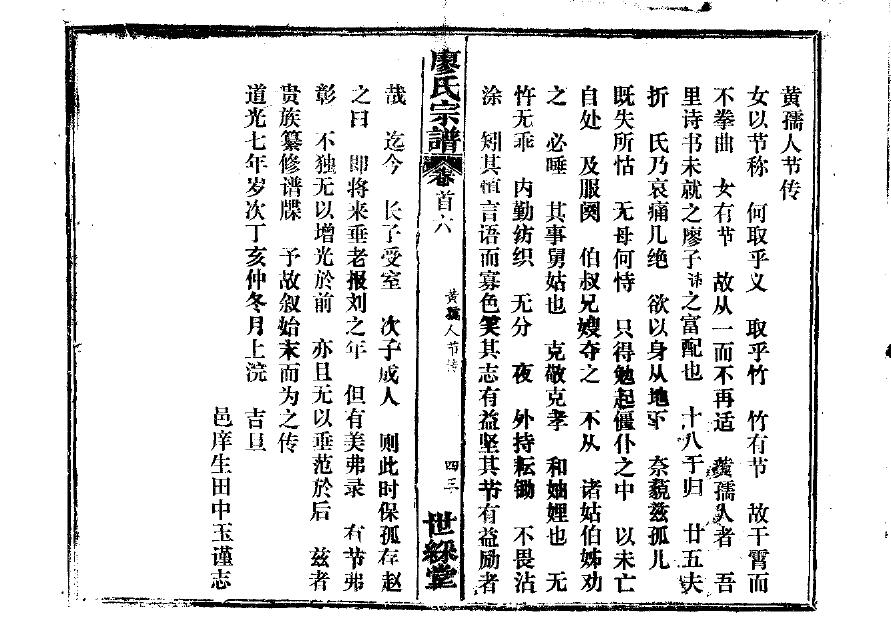 黄孺人节传
女以节称 何取乎义 取乎竹 竹有节 故干霄而
不拳曲 女有节 故从一而不再适 黄孺人者 吾
里诗书未就之廖子 之富配也 十八于归 廿五夫
折 氏乃哀痛几绝 欲以身从地下 奈藐兹孤儿
既失所怙 无母何恃 只得勉起僵仆之中 以未亡
自处 及服阕 伯叔兄嫂夺之 不从 诸姑伯姊劝
之 必唾 其事舅姑也 克敬克孝 和妯娌也 无
忤无乖 内勤纺织 无分 夜 外持耘锄 不畏沾
涂 矧其慎言语而寡色笑其志有益坚其节有益励者
廖氏宗譜 卷首六 黄孺人节传 四三 世綵堂
哉 迄今 长子受室 次子成人 则此时保孤存赵
之曰 即将来垂老报刘之年 但有美弗录 有节弗
彰 不独无以增光於前 亦且无以垂范於后 兹者
贵族纂修谱牒 予故叙始末而为之传
道光七年岁次丁亥仲冬月上浣 吉旦
邑庠生田中玉谨志